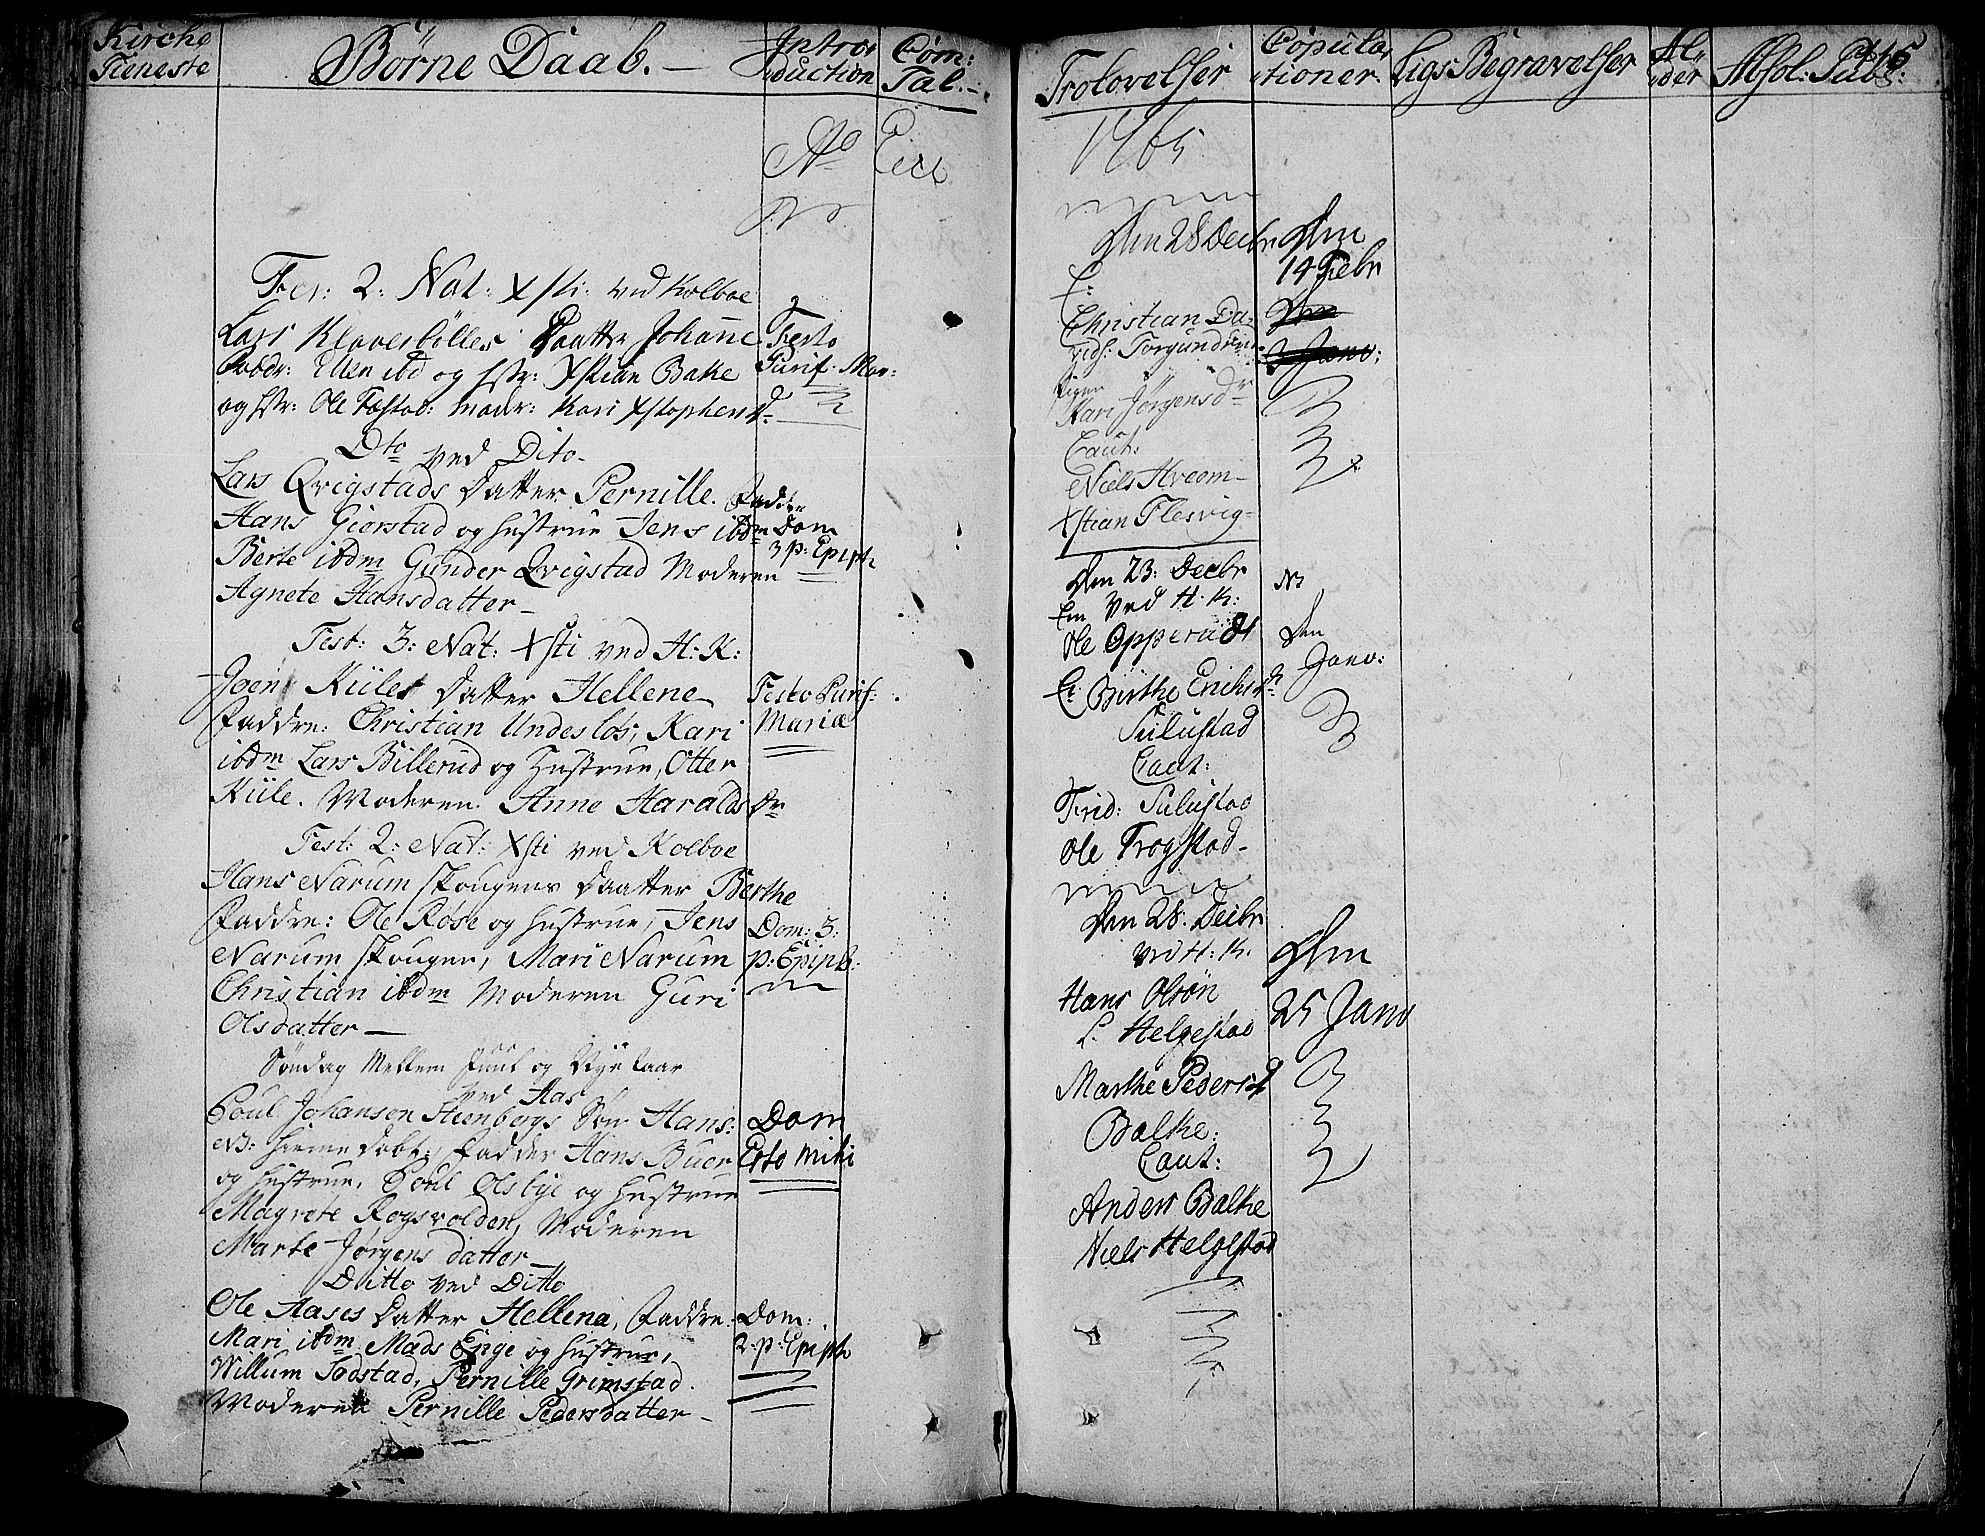 Kirche
Tieneste
Börne Daab. —
Intro:
duction
Com:
Tal. —
Ao
Eccl
Fer: 2: Nat: Xsti: ved Kolboe
Lars Kloverbølles Daatter Johanne
Fadr: Ellen ibd og Hstr: Xstian Balke
og Hstr: Ole Tøstad: Modr: Kari Xstophersd
Festo
Purif: Mar:
Dto ved Dito
Lars Qvigstads Datter Pernille. Fadder
Hans Giørstad og Hustrue Jens ibdm
Berte ibdm Gunder Qvigstad Moderen
Agnete Hansdatter —
Dom
3 p: Epiph
Fest: 3: Nat: Xsti ved H: K:
Joen Kiiles Datter Hellene
Faddre: Christian Undeslös, Kari
ibdm Lars Billerud og Hustrue, Otter
Kiile. Moderen Anne Haraldsdr
Festo Purif:
Mariæ
Fest: 2: Nat: Xsti ved Kolboe
Hans Narum Skougens Daatter Berthe
Faddre: Ole Røse og Hustrue, Jens
Narum Skougen, Mari Narum
Christian ibdm Moderen Guri
Olsdatter —
Dom: 3:
p: Epiph:
Søndag Mellem Juul og Nye Aar
ved Aas
Poul Johansen Steenbergs Søn Hans:
NB: hieme døbt, Fadder Hans Buer
og Hustrue, Poul Olsbye og Hustrue
Magrete Rogsvolden, Moderen
Marte Jørgensdatter —
Dom
Esto mihi
Ditto ved Ditto
Ole Aases Datter Hellena, Faddre
Mari ibdm Mads Enge og Hustrue,
Willum Sodstad, Pernille Grimstad.
Moderen Pernille Pedersdatter —
Dom:
2: p: Epiph
Trolovelser
Copula
tioner.
Ligs: Begravelser
Al
der
Absol: Publ:
1765
Den 28 Decbr
E:
Christian Da
vids: Torgundrud
Pigen
Kari Jørgensdr
Caut:
Niels Hveem
Xstian Flesvig
Den
14 Febr
Den 23: Decbr
Em ved H: K:
Ole Opperud
E: Birthe Erichsd
Sulustad
Caut:
Frid: Sulustad
Ole Trogstad
Den
Janv:
Den 28: Decbr
ved H: K.
Hans Olsøn
L. Helgestad
Marthe Pedersd
Balke:
Caut:
Anders Balke
Niels Helgestad
Den
25 Janv